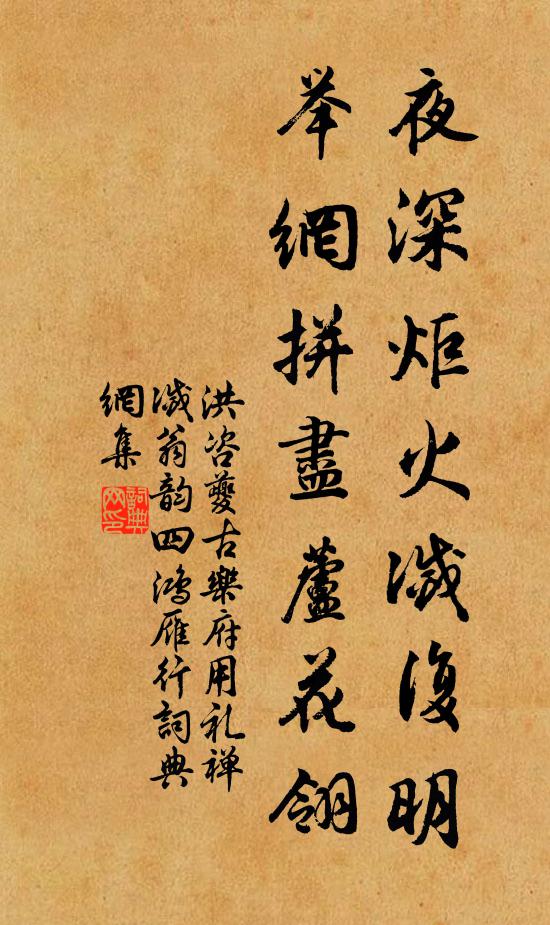 夜深炬火滅復明
举網拼盡蘆花翎
洪咨夔古樂府用礼禅
滅翁韵四鴻雁行詞典
網集
詞典
网印